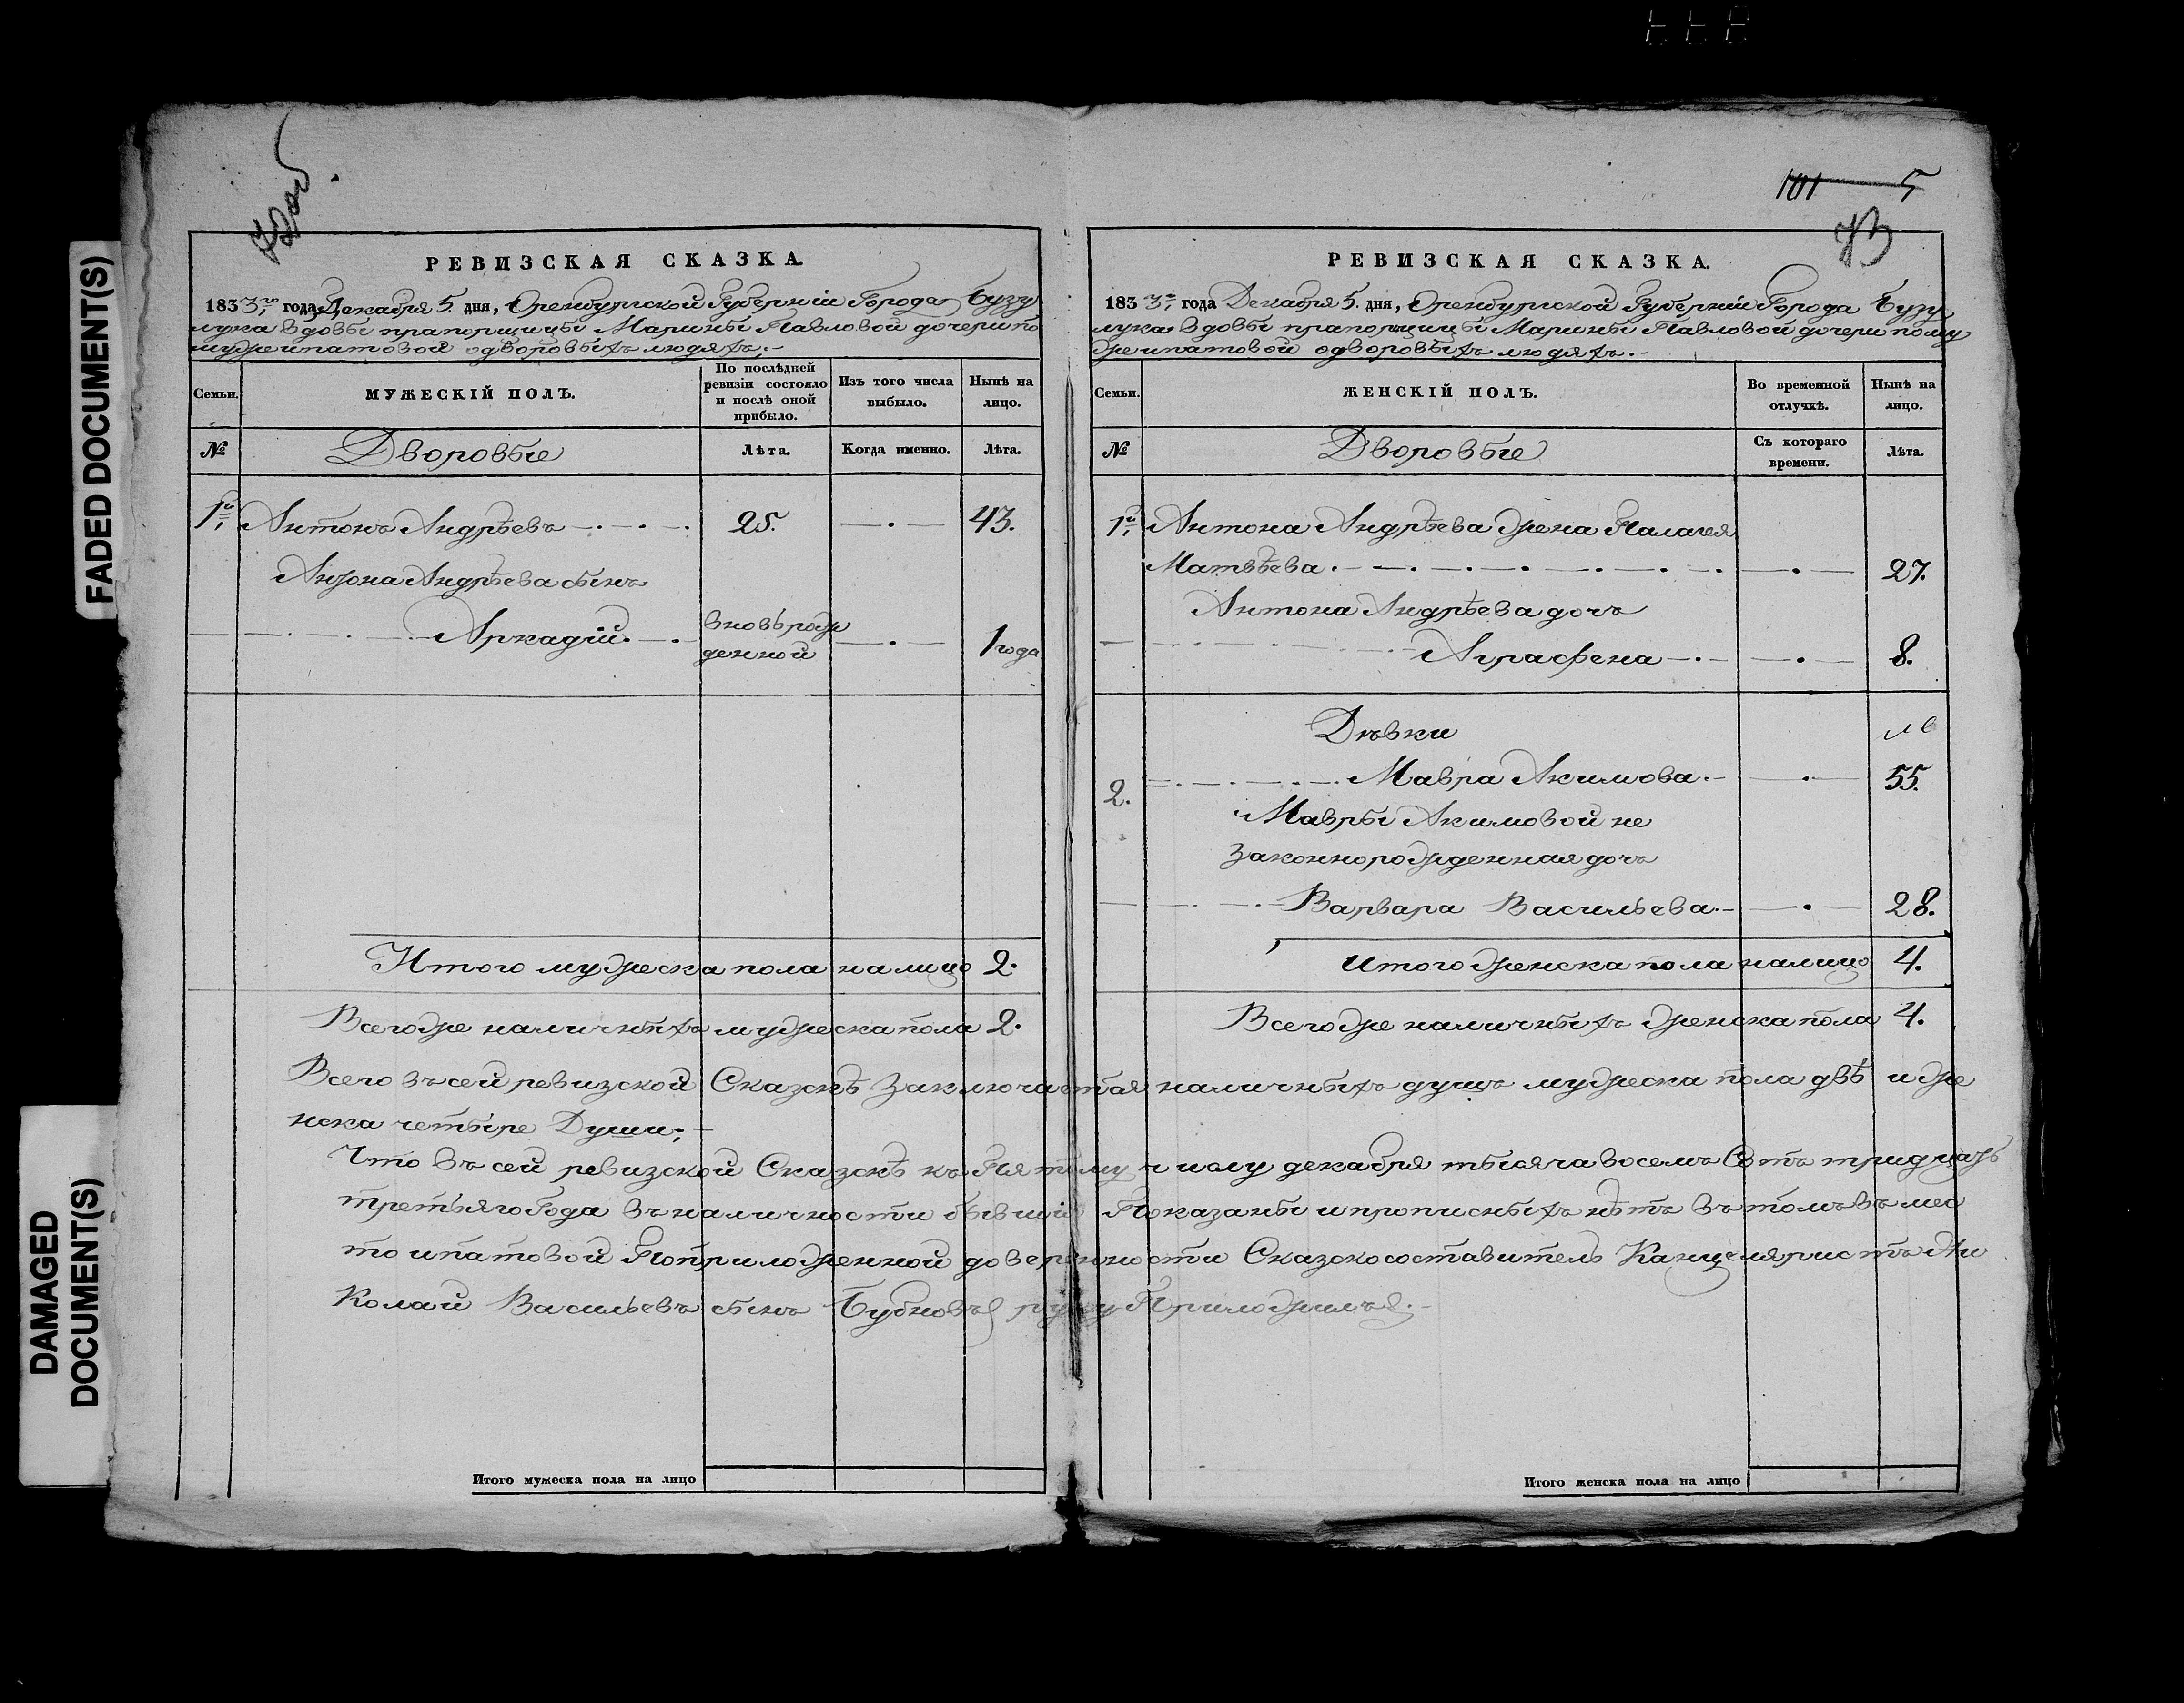 FADED DOCUMENT(S)
DAMAGED
DOCUMENT(S)
РЕВИЗСКАЯ СКАЗКА.
1833го года, Декабря 5. дня, Оренбургской Губерніи Города Бузу
лука вдовы прапорщицы Марины Павловой дочери по
мужу ипатовой одворовыхъ людяхъ;-
Семьи.
МУЖЕСКІЙ ПОЛЪ.
По послѣдней
ревизіи состояло
и послѣ оной
прибыло.
Изъ того числа
выбыло.
Нынѣ на
лицо.
№
Дворовые
Лѣта.
Когда именно.
Лѣта.
1й Антонъ Андрѣевъ 25. 43.
Антона Андрѣева сынъ
Аркадій. вновь рож
денной 1 года
Итого мужеска пола налицо 2.
Всего же наличныхъ мужеска пола 2.
101 5
РЕВИЗСКАЯ СКАЗКА.
1833го года Декабря 5. дня, Оренбургской Губерніи Города Бузу
лука вдовы прапорщицы Марины Павловой дочери пому
же ипатовой одворовыхъ людяхъ.-
Семьи.
ЖЕНСКІЙ ПОЛЪ.
Во временной
отлучкѣ.
Нынѣ на
лицо.
№
Дворовые
Съ котораго
времени.
Лѣта.
1й Антона Андрѣева жена Палагея
Матвѣева. 27.
Антона Андрѣева дочь
Аграфена 8.
Дѣвки
2. Мавра Акимова. 55.
Мавры Акимовой не
законнорожденная дочь
Варвара Васильева. 28.
Итого женска пола налицо 4.
Всего же наличныхъ женска пола 4.
Всего въ сей ревизской Сказкѣ заключается наличныхъ душъ мужеска пола двѣ и же
нска четыре Души;-
Что въ сей ревизской Сказкѣ къ Пятому числу декабря тысяча восемь Сотъ тридцать
третьяго Года въ наличности бывшіе Показаны и прописныхъ нѣтъ въ томъ въ мес
то ипатовой Поприложенной доверенности Сказкосоставитель Канцеляристъ Ни
Колай Васильевъ сынъ Бубновъ руку Приложилъ.-
Итого мужеска пола на лицо
Итого женска пола на лицо